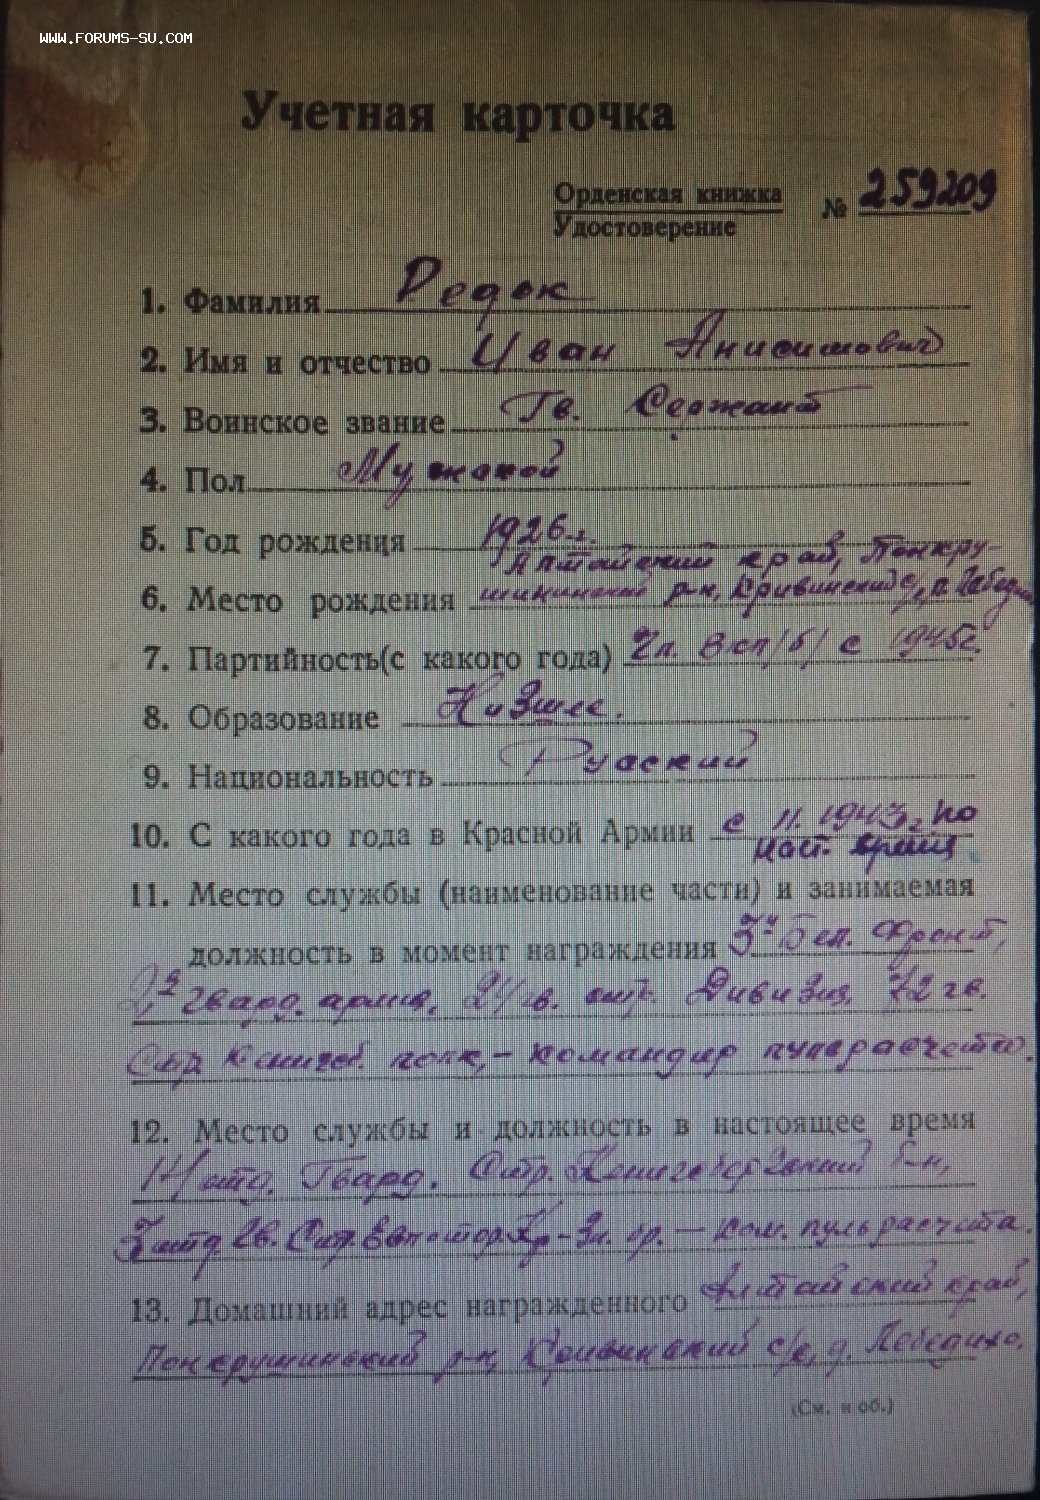 WWW.FORUMS-SU.COM
Учетная карточка
Орденская книжка
Удостоверение
№ 259209
1. Фамилия Редок
2. Имя и отчество Иван Анисимович
3. Воинское звание Гв. Сержант
4. Пол Мужской
5. Год рождения 1926 г.
Алтайский край, Панкру-
6. Место рождения шихинский р-н, Кривинский с/с, п.
7. Партийность (с какого года) Чл. ВКП/б/ с 1945г.
8. Образование Низшее.
9. Национальность Русский
10. С какого года в Красной Армии с 11.1943г. по
наст. время
11. Место службы (наименование части) и занимаемая
должность в момент награждения 3й Бел. Фронт,
2я гвард. армия, гв. Дивизия, 72 гв.
полк, - командир пульрасчета.
12. Место службы и должность в настоящее время
Гвард. Стр. Кенигсбергский
- ком. пульрасчета.
13. Домашний адрес награжденного Алтайский край,
р-н, Кривинский с/с, д. Лебедиха.
(См. н об.)